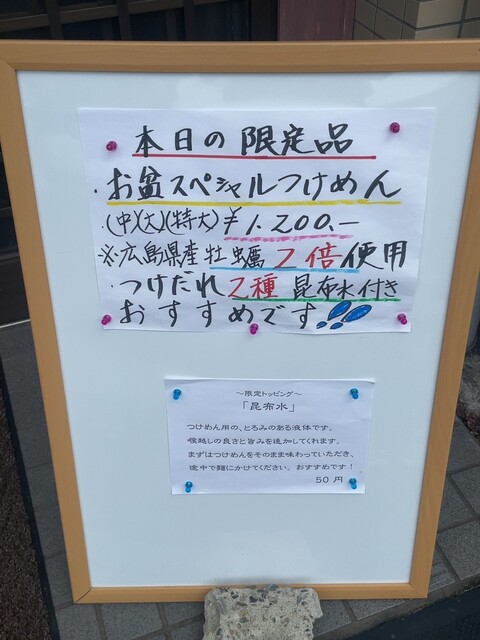 本日の限定品
・お盆スペシャルつけめん
・(中)(大)(特大)¥1.200.-
※広島県産牡蠣2倍使用
・つけだれ2種 昆布水付き
おすすめです!!
～限定トッピング～
「昆布水」
つけめん用の、とろみのある液体です。
喉越しの良さと旨みを追加してくれます。
まずはつけめんをそのまま味わっていただき、
途中で麺にかけてください。おすすめです！
50円